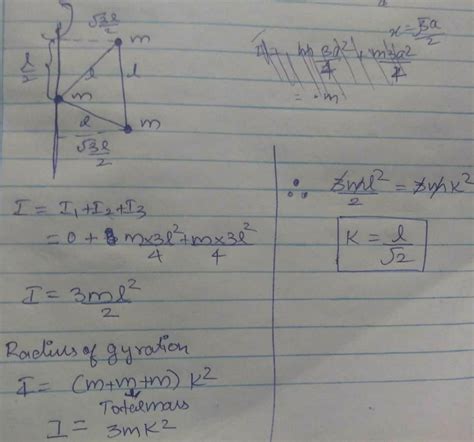 √3l/2
m
l/2
l
l
m
l
m
√3l/2
x = √3a/2
I = I₁+I₂+I₃
= 0 + m×3l²/4 + m×3l²/4
I = 3ml²/2
Radius of gyration
I = (m+m+m) K²
Total mass
I = 3mK²
∴ 3ml²/2 = 3mK²
K = l/√2